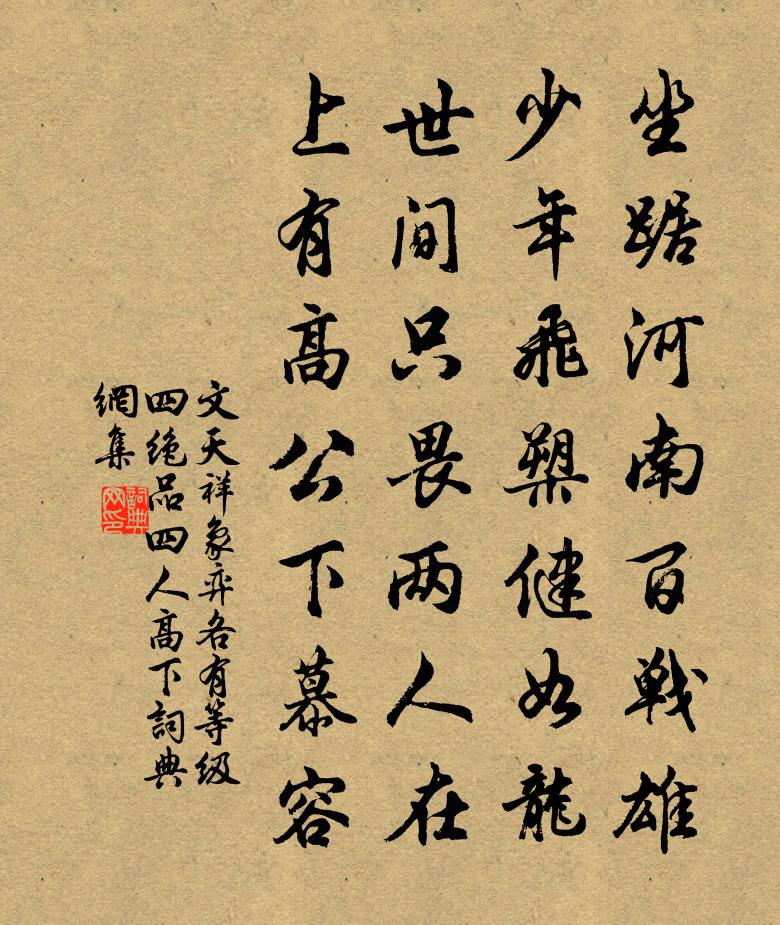 坐踞河南百戰雄
少年飛槊健如龍
世间只畏两人在
上有高公下慕容
文天祥象弈各有等级
四绝品四人高下詞典
網集
詞典
网印